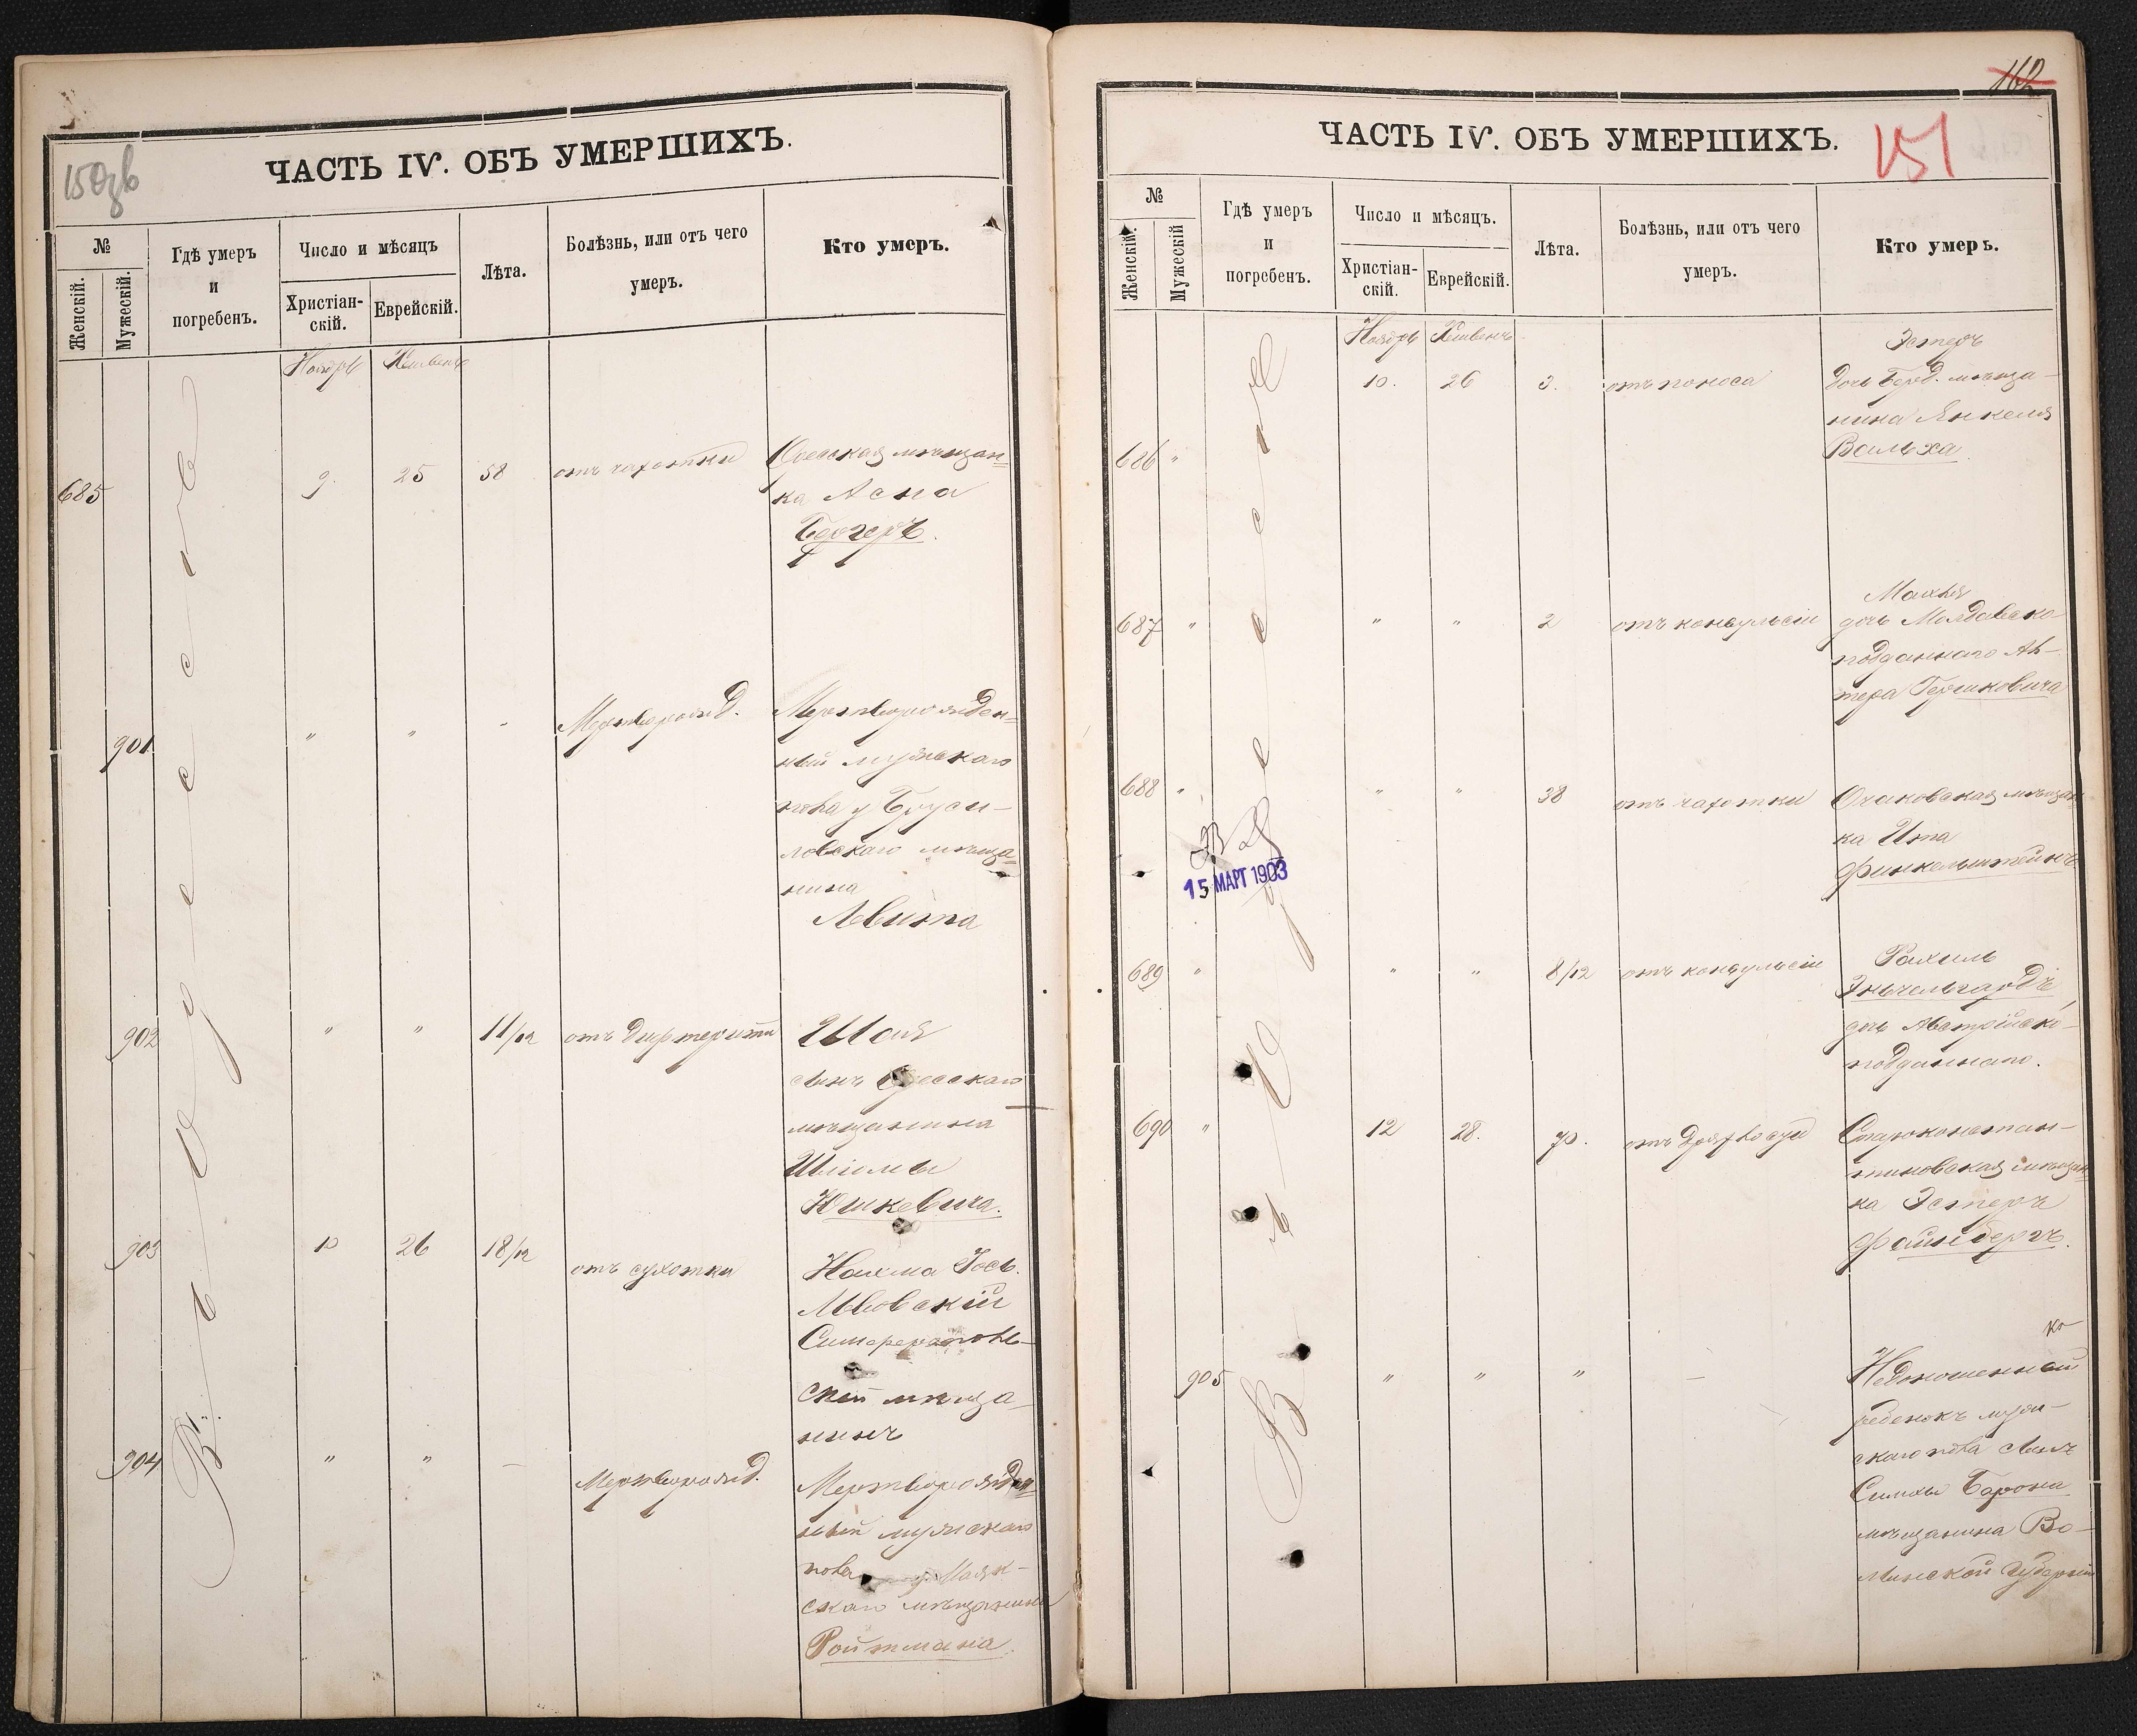 150зв
ЧАСТЬ IV. ОБЪ УМЕРШИХЪ.
№
Женскій.
Мужескій.
Гдѣ умеръ
и
погребенъ.
Число и мѣсяцъ
Христіан-
скій.
Еврейскій.
Лѣта.
Болѣзнь, или отъ чего
умеръ.
Кто умеръ.
Ноябрь Хешвенъ
Въ Одессѣ
685 9. 25 58 отъ чахотки Одесская мѣщан=
ка Асна
Бергеръ.
901 " " - Мертворожд. Мертворожден=
ный мужскаго
пола у Бруси-
ловскаго мѣща=
нина
Левита
902 " " 11/12 отъ дифтерита Шая
сынъ Одесскаго
мѣщанина
Шлiомы
Юшкевича.
903 10 26 18/12 отъ сухотки Нахма Іось
Львовскій
Симферополь-
скій мѣща-
нинъ
904 " " - Мертворожд. Мертворожден=
ный мужскаго
пола Маяк-
скаго мѣщанина
Ройтмана.
162
ЧАСТЬ IV. ОБЪ УМЕРШИХЪ.
151
№
Женскій.
Мужескій
Гдѣ умеръ
и
погребенъ.
Число и мѣсяцъ.
Христіан-
скій.
Еврейскій.
Лѣта.
Болѣзнь, или отъ чего
умеръ.
Кто умеръ.
Ноябрь Хешвенъ
Въ Одессѣ
686 " 10. 26 3. отъ поноса Эстеръ
дочь Берд. мѣща-
нина Янкеля
Вальха.
687 " " " 2 отъ конвульсіи Малья
дочь Молдавско
подданнаго Аль-
тера Гершковича
688 " " " 38 отъ чахотки Очаковская мѣщан
ка Ита
Финкельштейнъ
15 МАРТ 1903
689 " " " 8/12 отъ конвульсіи Рахиль
Энгельгардъ
дочь Австрійско-
подданнаго.
690 " 12 28. 70. отъ дряхлости Староконстан-
тиновская мѣщан=
ка Эстеръ
Файнбергъ.
905 " " " - Недоношенный
ребенокъ муж-
скаго пола сынъ
Симхи Барона
мѣщанина Во-
лынской губерніи